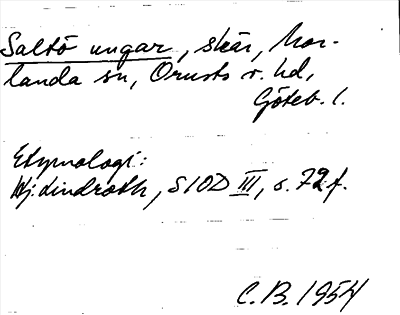 Saltö ungar, skär, Mor-
landa sn, Orusts v. hd,
Göteb. l.
Etymologi:
Hj. Lindroth, SIOD III, s. 72 f.
C.B. 1954